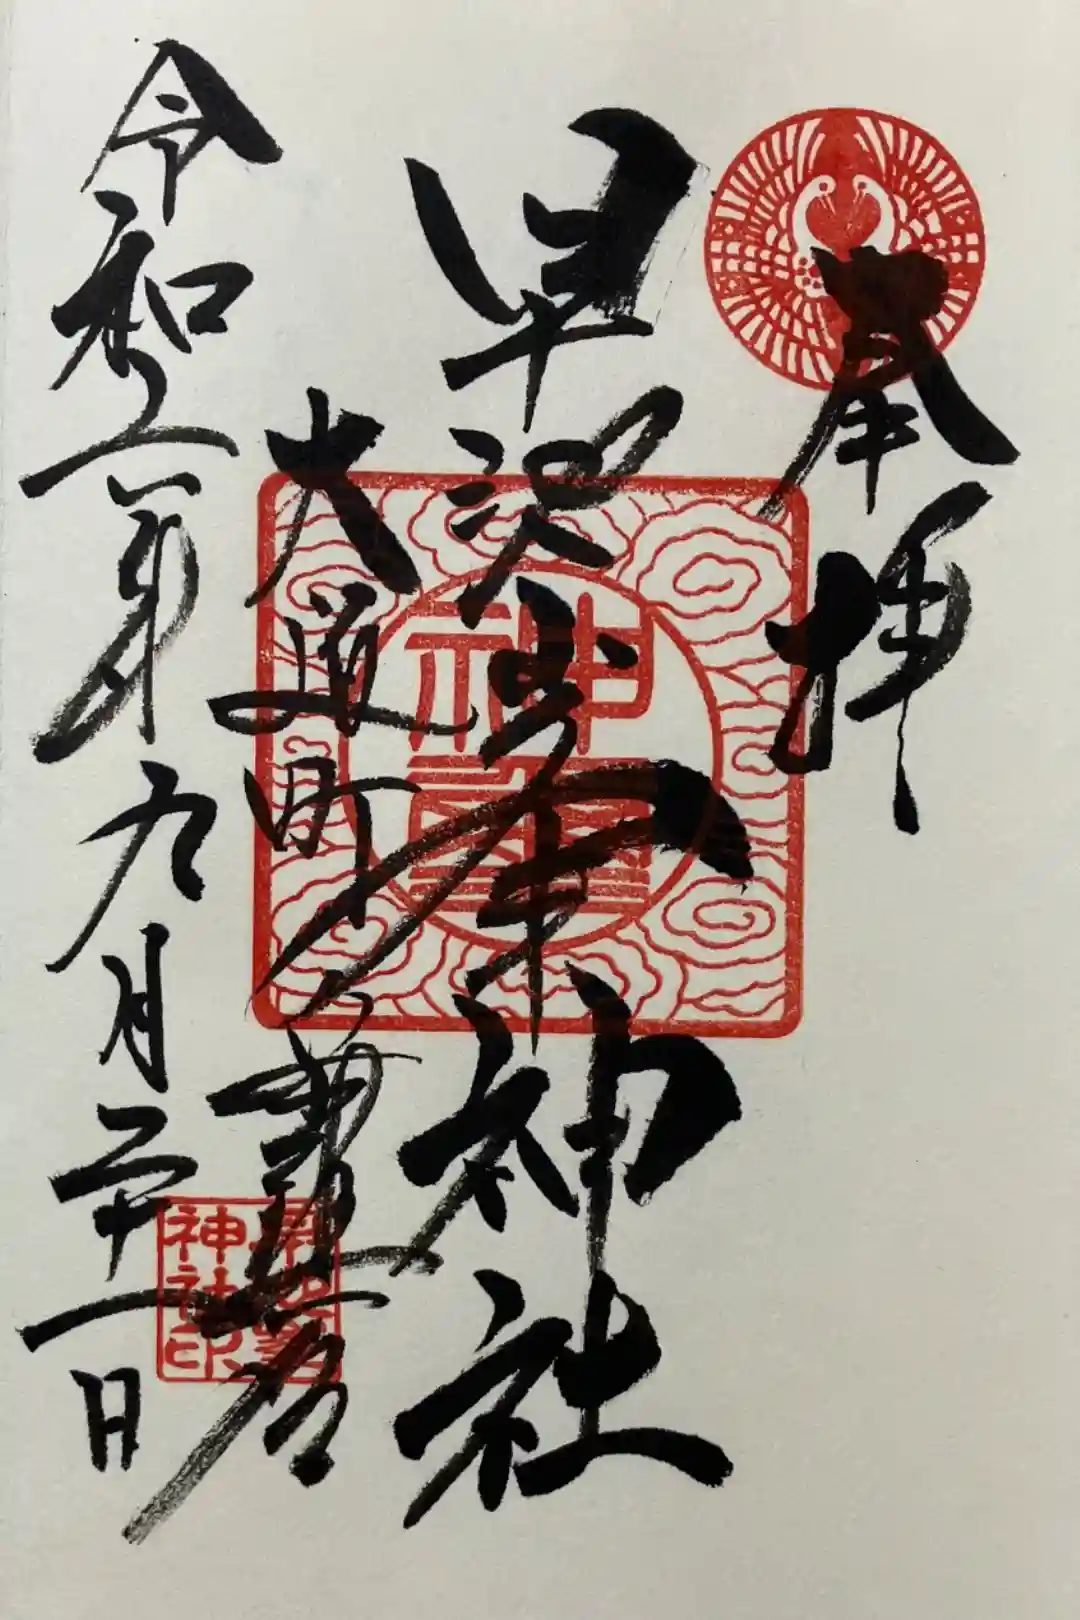 奉拝
早池峯神社
神璽
大迫町
早池峯神社印
令和二年九月二十一日